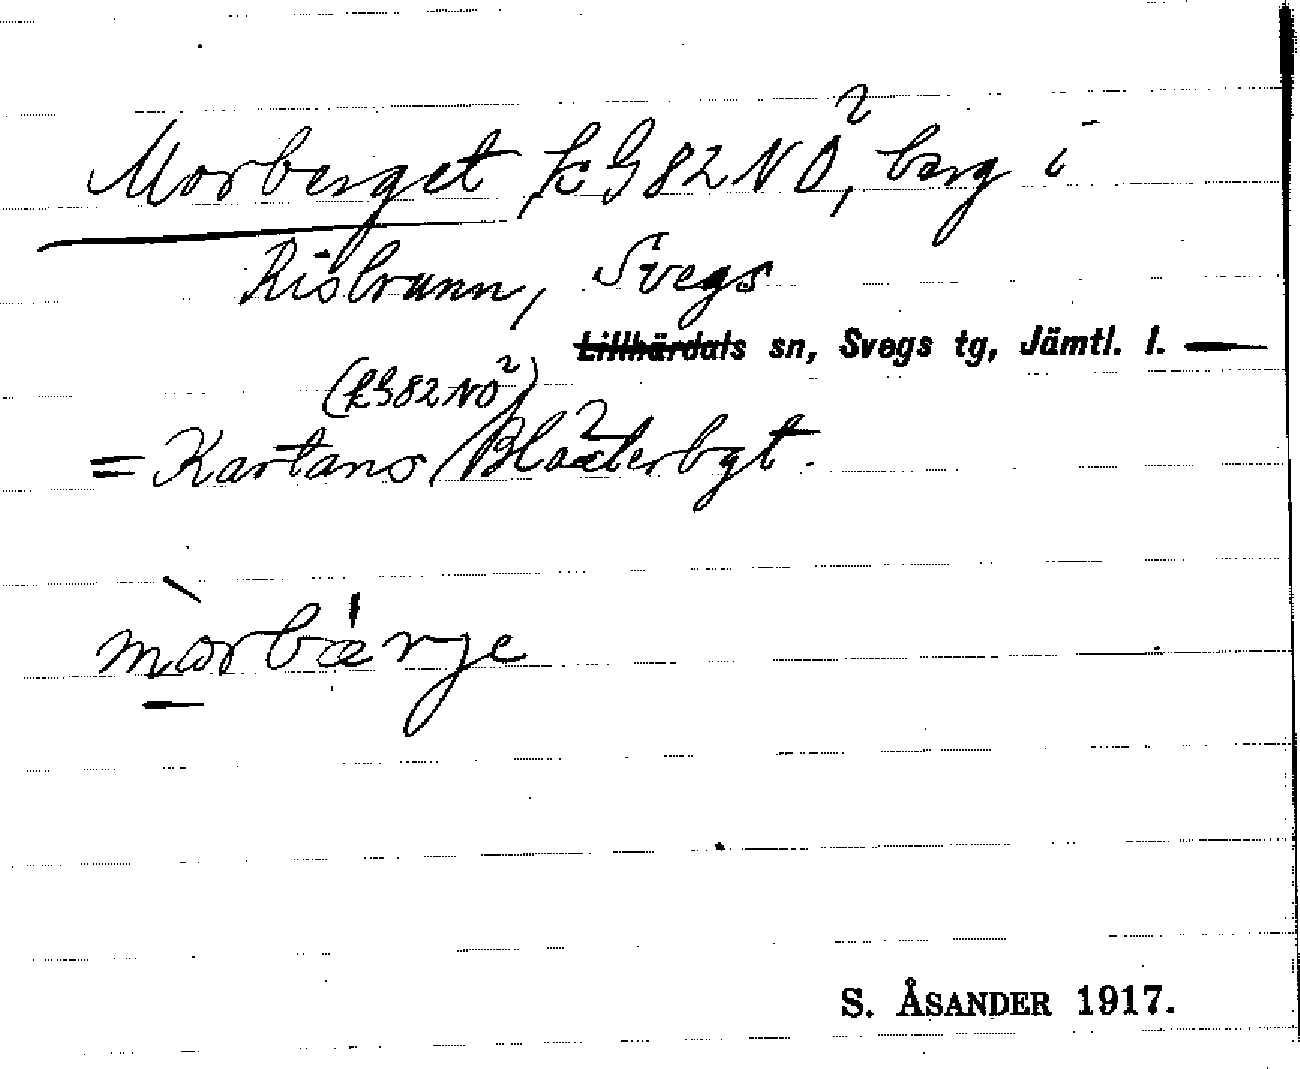 Morberget k G 82 NO², berg i
Risbrunn, Svegs
Lillhärdals sn, Svegs tg, Jämtl. l. —
(k G 82 NO²)
= Kartans Blåxterbgt.
mòrbærje
S. ÅSANDER 1917.